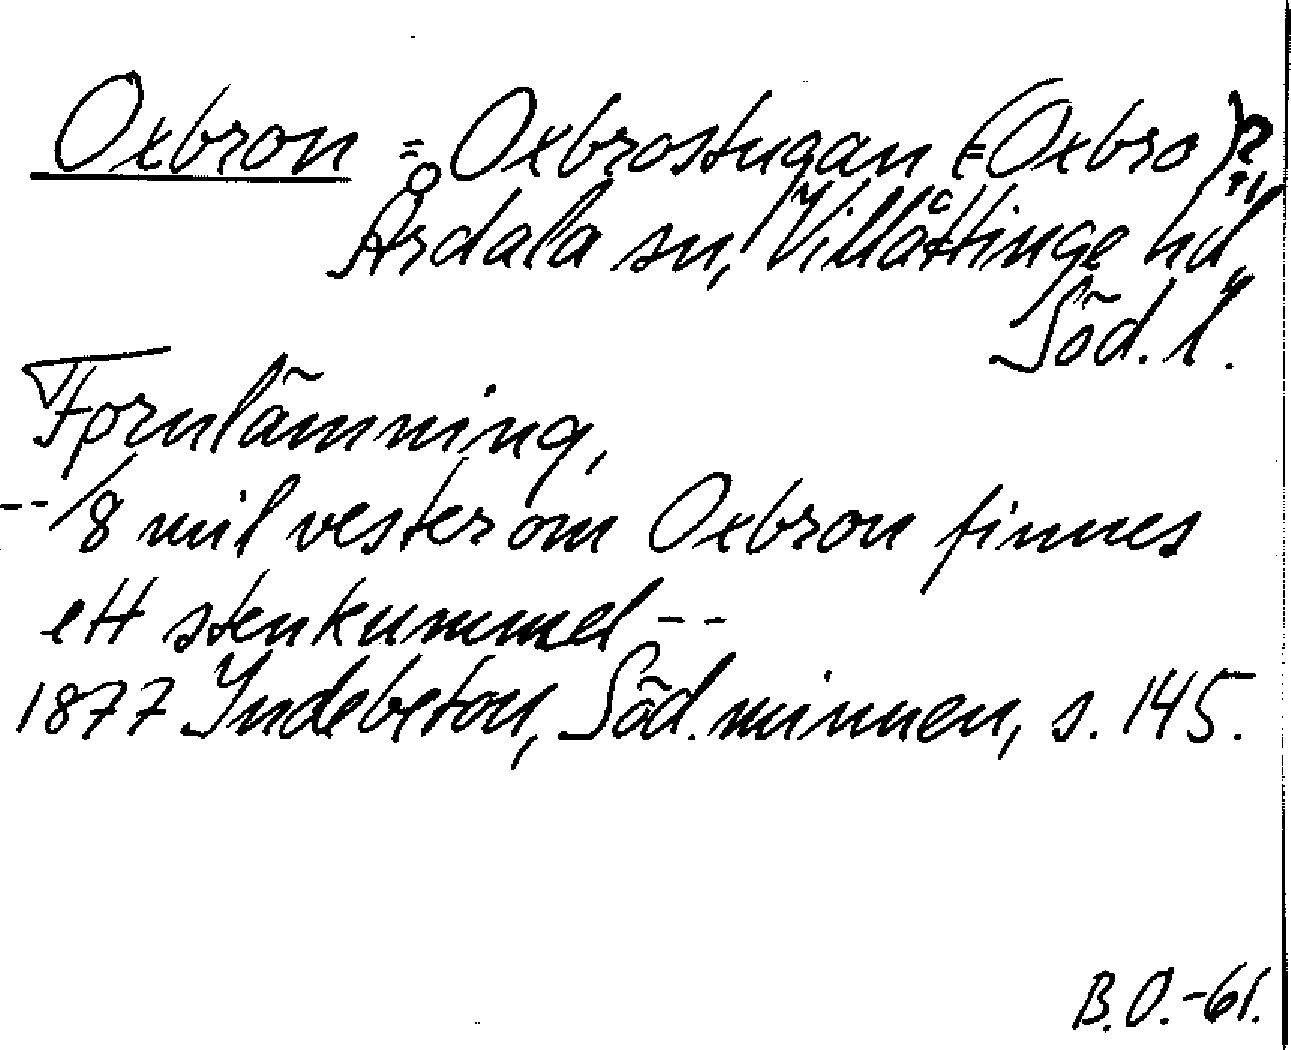 Oxbron = Oxbrostugan (=Oxbro)?
Årdala sn, Villåttinge hd,
Söd. l.
Fornlämning,
-- 1/8 mil vester om Oxbron finnes
ett stenkummel --
1877 Indebetou, Söd. minnen, s. 145.
B.O.-61.